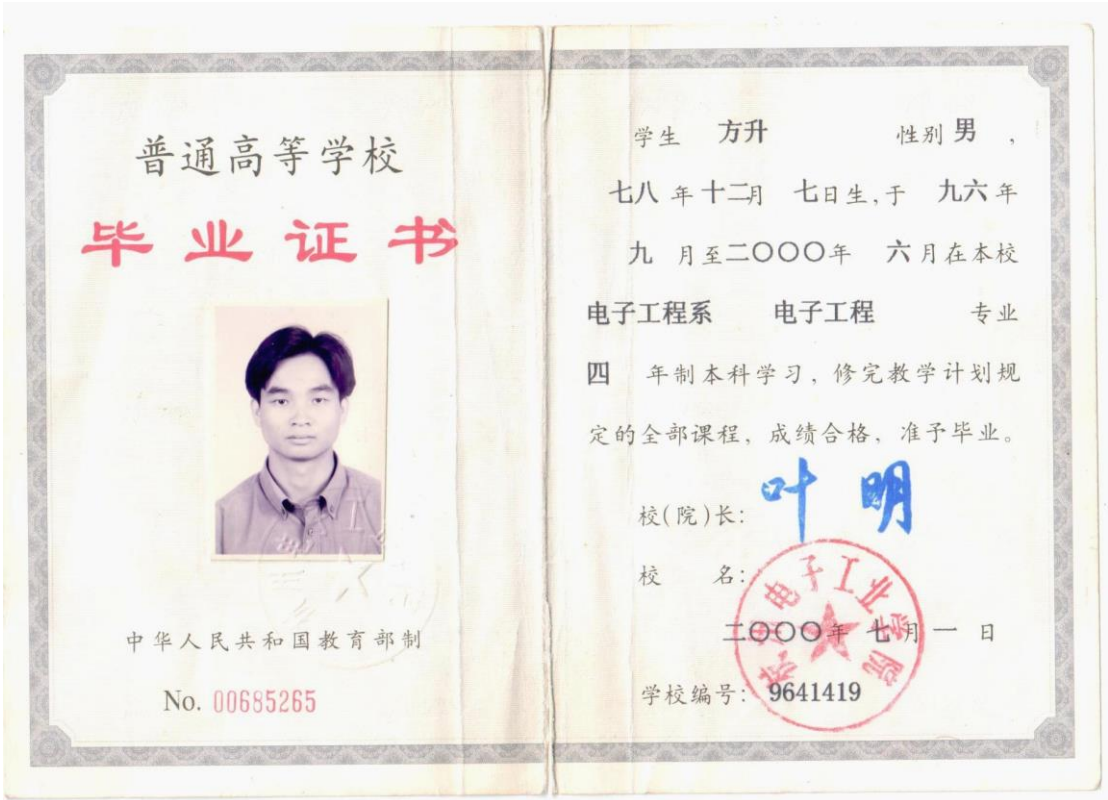 普通高等学校
毕业证书
中华人民共和国教育部制
No. 00685265
学生 方升 性别 男，
七八年十二月 七日生，于 九六年
九 月至二〇〇〇年 六月在本校
电子工程系 电子工程 专业
四 年制本科学习，修完教学计划规
定的全部课程，成绩合格，准予毕业。
校(院)长：叶明
校 名：
电子工业学院
二〇〇〇年 七月 一 日
学校编号：9641419